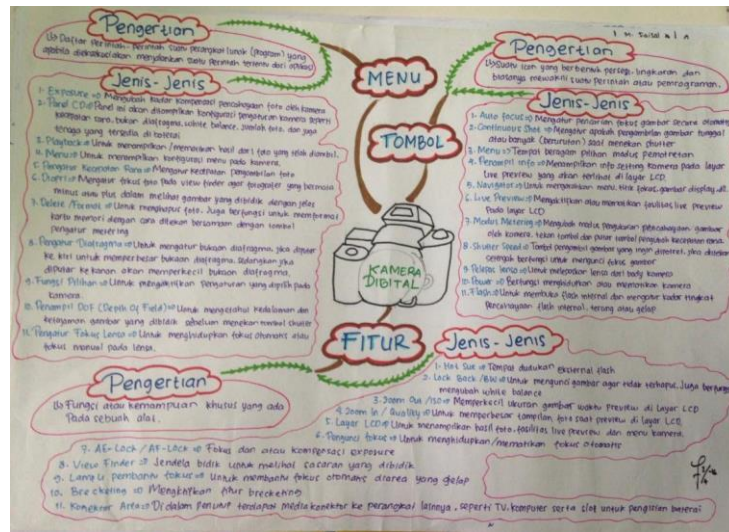 MENU
Pengertian
Daftar Perintah-perintah suatu perangkat lunak (program) yang
apabila dieksekusi akan menjalankan suatu perintah tertentu dari aplikasi
Jenis-Jenis
1. Exposure ⇒ Mengubah kadar kompensasi pencahayaan foto oleh kamera
2. Panel LCD ⇒ Panel ini akan ditampilkan konfigurasi pengaturan kamera seperti
kecepatan rana, bukan diafragma, white balance, jumlah foto, dan juga
tenaga yang tersedia di baterai
3. Playback ⇒ Untuk menampilkan /memainkan hasil dari foto yang telah diambil.
4. Menu ⇒ Untuk menampilkan konfigurasi menu pada kamera.
5. Pengatur Kecepatan Rana ⇒ Mengatur kecepatan pengambilan foto
6. Diopri ⇒ Mengatur fokus foto pada view finder agar fotografer yang bermata
minus atau plus dalam melihat gambar yang dibidik dengan jelas
7. Delete /Format ⇒ Untuk menghapus foto. Juga berfungsi untuk memformat
kartu memori dengan cara ditekan bersamaan dengan tombol
pengatur metering
8. Pengatur Diafragma ⇒ Untuk mengatur bukaan diafragma, jika diputar
ke kiri untuk memperbesar bukaan diafragma, sedangkan jika
diputar ke kanan akan memperkecil bukaan diafragma.
9. Fungsi Pilihan ⇒ Untuk mengaktifkan Pengaturan yang dipilih pada
kamera.
10. Penampil DOF (Depth Of Field) ⇒ Untuk mengetahui kedalaman dan
ketajaman gambar yang dibidik sebelum menekan tombol shutter
11. Pengatur Fokus Lensa ⇒ Untuk menghidupkan fokus otomatis atau
fokus manual pada lensa.
TOMBOL
Pengertian
Suatu icon yang berbentuk persegi, lingkaran dan
biasanya mewakili suatu perintah atau pemrograman.
Jenis-Jenis
1. Auto Focus ⇒ Mengatur pencarian fokus gambar secara otomatis
2. Continuous Shot ⇒ Mengatur apakah pengambilan gambar tunggal
atau banyak (berurutan) saat menekan shutter
3. Menu ⇒ Tempat beragam pilihan modus pemotretan
4. Penampil Info ⇒ Menampilkan info setting kamera pada layar
live preview yang akan terlihat di layar LCD.
5. Navigator ⇒ Untuk mengarahkan menu, titik fokus, gambar display dll.
6. Live Preview ⇒ Mengaktifkan atau mematikan fasilitas live preview
Pada layar LCD
7. Modus Metering ⇒ Mengubah modus pengukuran pencahayaan gambar
oleh kamera. tekan tombol dan putar tombol pengubah kecepatan rana.
8. Shutter Speed ⇒ Tombol pengambil gambar yang ingin dipotret, jika ditekan
setengah berfungsi untuk mengunci fokus gambar
9. Pelepas lensa ⇒ Untuk melepaskan lensa dari body kamera
10. Power ⇒ Berfungsi menghidupkan atau mematikan kamera
11. Flash ⇒ Untuk membuka flash internal dan mengatur kadar tingkat
pencahayaan flash internal, terang atau gelap
KAMERA
DIGITAL
FITUR
Pengertian
Fungsi atau kemampuan khusus yang ada
Pada sebuah alat.
Jenis-Jenis
1. Hot Sue ⇒ Tempat dudukan eksternal flash
2. Lock Back /BW ⇒ Untuk mengunci gambar agar tidak terhapus. Juga berfungsi
mengubah white balance
3. Zoom Out /ISO ⇒ Memperkecil ukuran gambar waktu Preview di layar LCD
4. Zoom In / Quality ⇒ Untuk memperbesar tampilan foto saat preview di layar LCD
5. Layar LCD ⇒ Untuk menampilkan hasil foto, fasilitas live preview dan menu kamera.
6. Pengunci fokus ⇒ Untuk menghidupkan/mematikan fokus otomatis
7. AE-Lock / AF-Lock ⇒ Fokus dan atau kompensasi exposure
8. View Finder ⇒ Jendela bidik untuk melihat sasaran yang dibidik
9. Lampu pembantu fokus ⇒ Untuk membantu fokus otomatis diarea yang gelap
10. Brecketing ⇒ Mengktifkan fitur brecketing
11. Konektor Area ⇒ Di dalam penutup terdapat media konektor ke perangkat lainnya, seperti TV, komputer serta slot untuk pengisian baterai